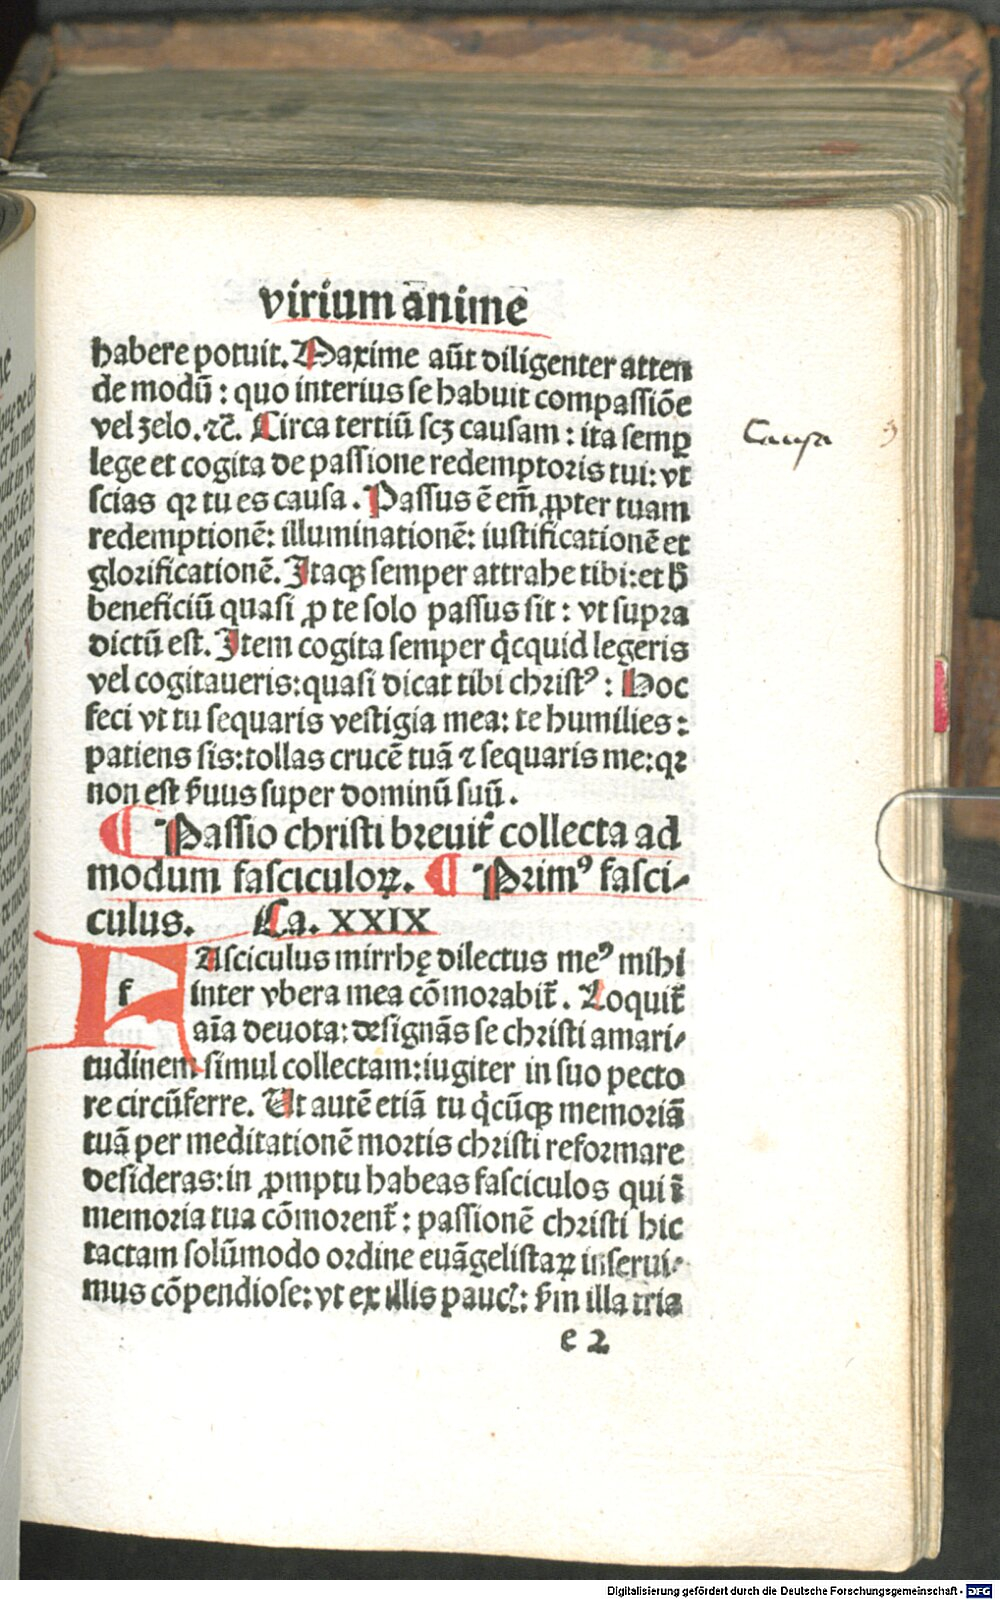 virium anime
habere potuit. Maxime aūt diligenter atten
de modū : quo interius se habuit compassiōe
vel zelo. ⁊c̄. Circa tertiū scꝫ causam : ita semꝑ
lege et cogita de passione redemptoris tui: vt
scias qꝛ tu es causa . Passus ē em̄ ꝓpter tuam
redemptionē: illuminationē: iustificationē et
glorificationē. Itaqꝫ semper attrahe tibi: et h̄
beneficiū quasi ꝓ te solo passus sit : vt supra
dictū est. Item cogita semper q̇cquid legeris
vel cogitaueris: quasi dicat tibi christꝰ : Hoc
feci vt tu sequaris vestigia mea: te humilies :
patiens sis: tollas crucē tuā ⁊ sequaris me: qꝛ
non est ẜuus super dominū suū .
¶ Passio christi breuit̄ collecta ad
modum fasciculoꝝ. ¶ Primꝰ fasci-
culus. Ca. XXIX
FAsciculus mirrhę dilectus meꝰ mihi
f
inter vbera mea cōmorabit̄ . Loquit̄
aīa deuota: designās se christi amari-
tudinem simul collectam: iugiter in suo pecto
re circūferre. Ut autē etiā tu q̇cūqꝫ memoriā
tuā per meditationē mortis christi reformare
desideras: in ꝓmptu habeas fasciculos qui ī
memoria tua cōmorent̄ : passionē christi hic
tactam solūmodo ordine euāgelistaꝝ inserui-
mus cōpendiose: vt ex illis paucꝭ: ẜm illa tria
e 2
Causa
Digitalisierung gefördert durch die Deutsche Forschungsgemeinschaft - DFG